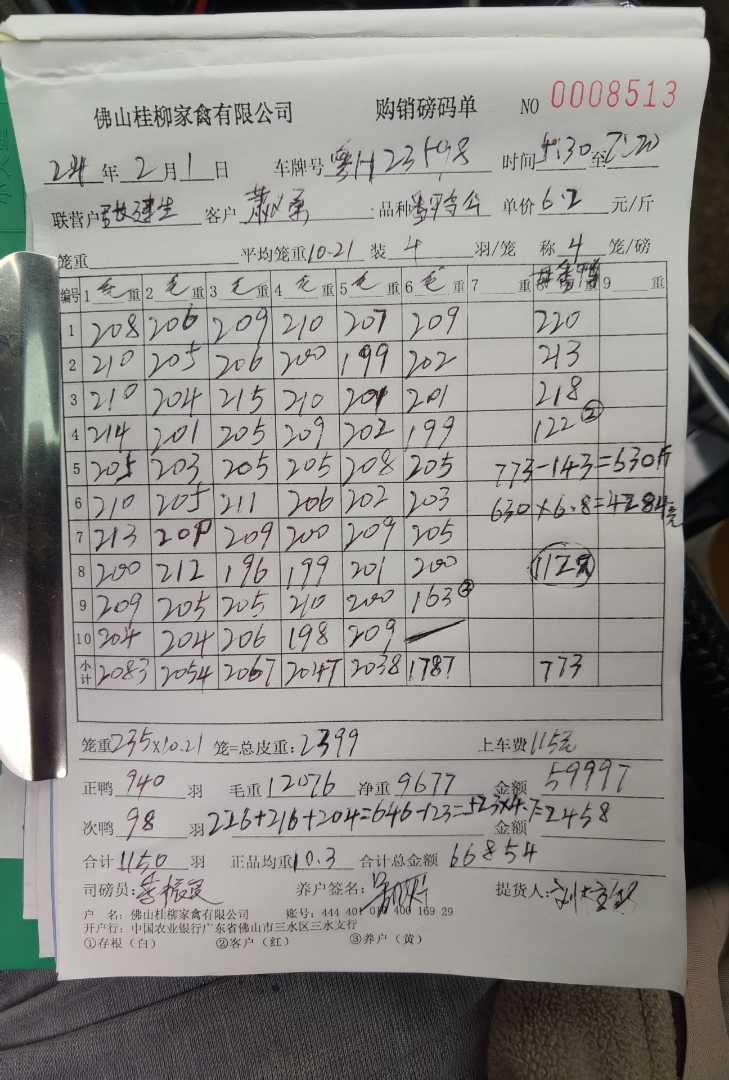 佛山桂柳家禽有限公司 购销磅码单 NO 0008513
24 年 2 月 1 日 车牌号 粤H 时间 :30 至 7:20
联营户 客户 萧 品种 单价 6.2 元/斤
笼重 平均笼重 10.21 装 4 羽/笼 称 4 笼/磅
编号 1 毛 重 2 毛 重 3 毛 重 4 毛 重 5 毛 重 6 毛 重 7 重 9 重
1 208 206 209 210 207 209 220
2 210 205 206 200 199 202 213
3 210 204 215 210 201 201 218
4 214 201 205 209 202 199 122 ②
5 205 203 205 205 208 205 773-143=630斤
6 210 205 211 206 202 203 630×6.8=4284元
7 213 209 209 200 209 205
8 200 212 196 199 201 200 112只
9 209 205 205 210 200 163 ③
10 204 204 206 198 209
小计 2083 2054 2067 2047 2038 1787 773
笼重 235×10.21 笼=总皮重: 2399 上车费 115元
正鸭 940 羽 毛重 12076 净重 9677 金额 59997
次鸭 98 羽 226+216+204=646-123=523×4.7=2458 金额
合计 1150 羽 正品均重 10.3 合计总金额 66854
司磅员: 养户签名: 提货人:
户 名: 佛山桂柳家禽有限公司 账号: 444 401 010 400 169 29
开户行: 中国农业银行广东省佛山市三水区三水支行
①存根（白） ②客户（红） ③养户（黄）